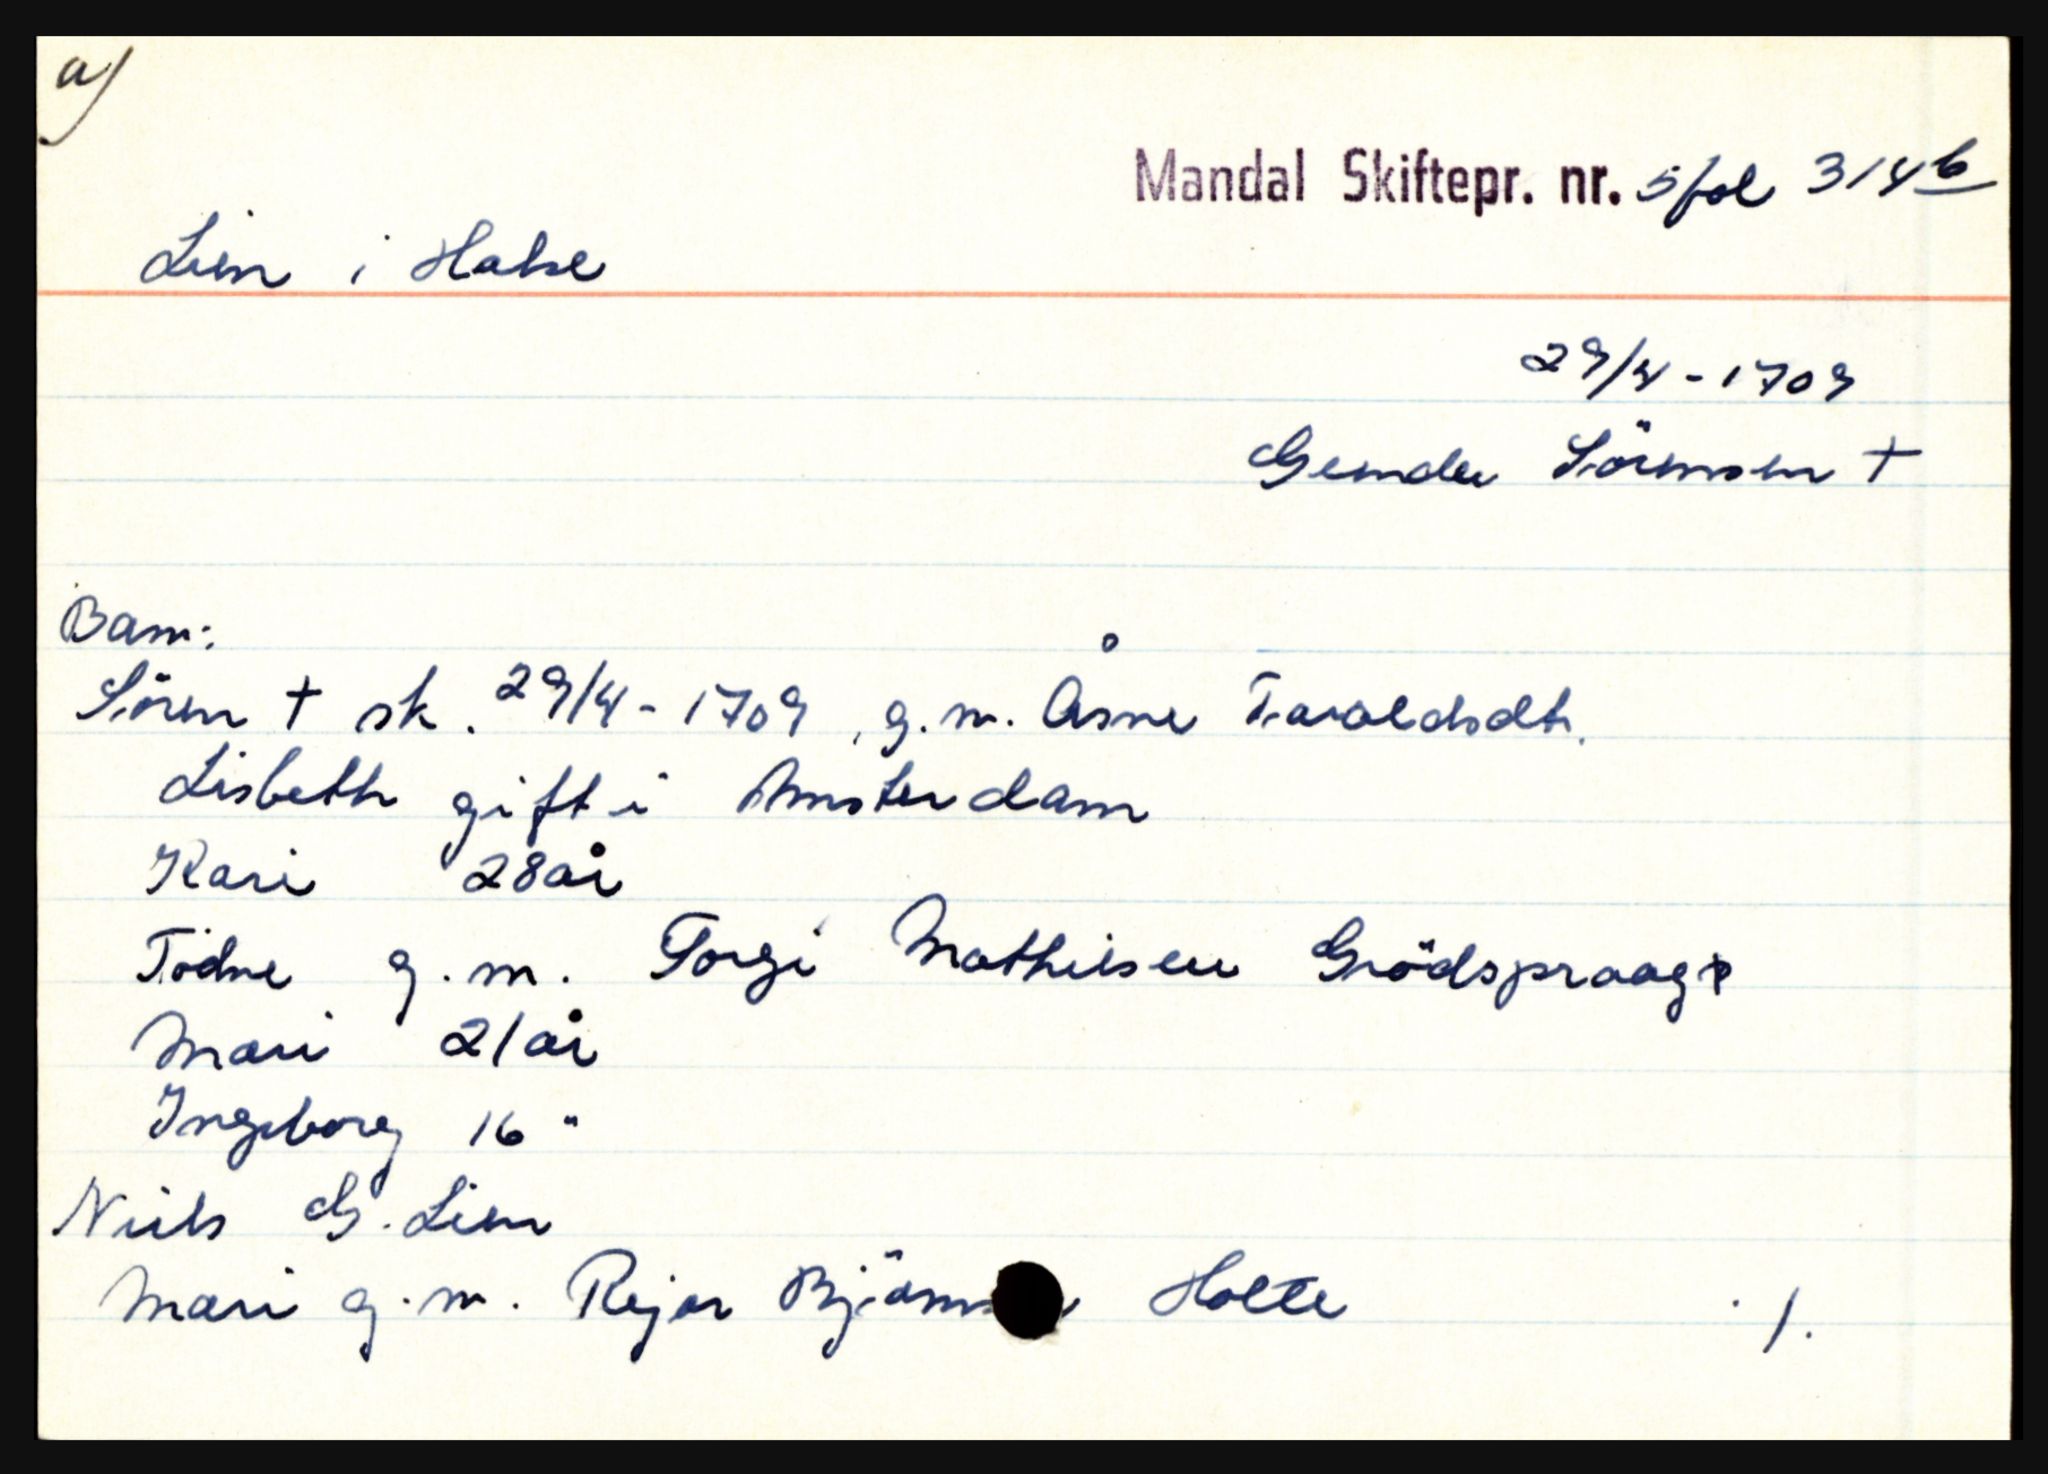 a)
Mandal Skiftepr. nr. 5 fol 314 b
Lien i Halse
29/4 - 1709
Gunder Sörensen +
Barn:
Sören + sk. 29/4 - 1709, g.m. Åsne Taraldsdtr.
Lisbeth gift i Amsterdam
Kari 28 år
Tödne g.m. Torgi Mathisen Grödspraag
Mari 21 år
Ingeborg 16 "
Niels G. Lien
Mari g.m. Rejer Holte
1.